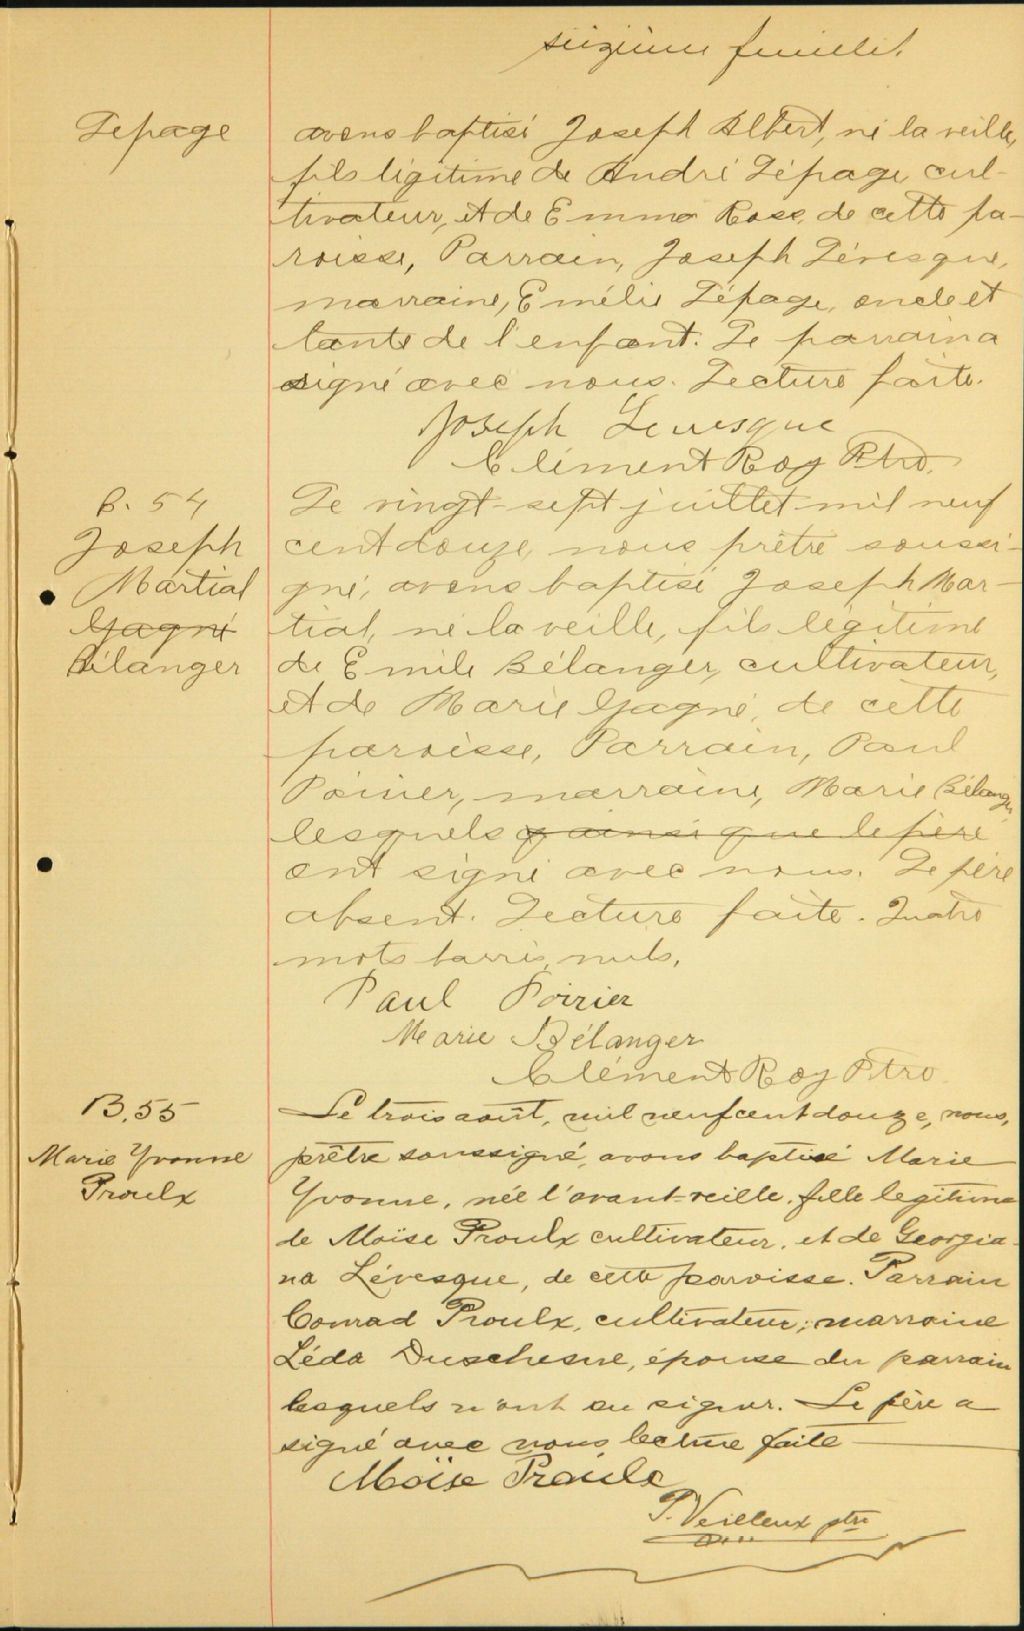 seizième feuillet
Lepage
avons baptisé Joseph Albert, né la veille,
fils légitime de André Lépage, cul-
tivateur, et de Emma Ross, de cette pa-
roisse, Parrain, Joseph Lévesque,
marraine, Emélie Lépage, oncle et
tante de l'enfant. Le parrain a
signé avec nous. Lecture faite.
Joseph Levesque
Clément Roy Ptre.
B. 54
Joseph
Martial
Gagné
Bélanger
Le vingt-sept juillet mil neuf
cent douze, nous prêtre soussi-
gné, avons baptisé Joseph Mar-
tial, né la veille, fils légitime
de Emile Bélanger, cultivateur,
et de Marie Gagné, de cette
paroisse, Parrain, Paul
Poirier, marraine, Marie Bélanger,
lesquels ainsi que le père
ont signé avec nous. Le père
absent. Lecture faite. Quatre
mots barrés, nuls.
Paul Poirier
Marie Bélanger
Clément Roy Ptre.
B. 55
Marie Yvonne
Proulx
Le trois août, mil neuf cent douze, nous,
prêtre soussigné, avons baptisé Marie
Yvonne, née l'avant-veille, fille legitime
de Moïse Proulx cultivateur, et de Georgia-
na Lévesque, de cette paroisse. Parrain
Conrad Proulx, cultivateur; marraine
Léda Duschesne, épouse du parrain
lesquels n'ont su signer. Le père a
signé avec nous, lecture faite
Moïse Proulx
P. Veilleux ptre